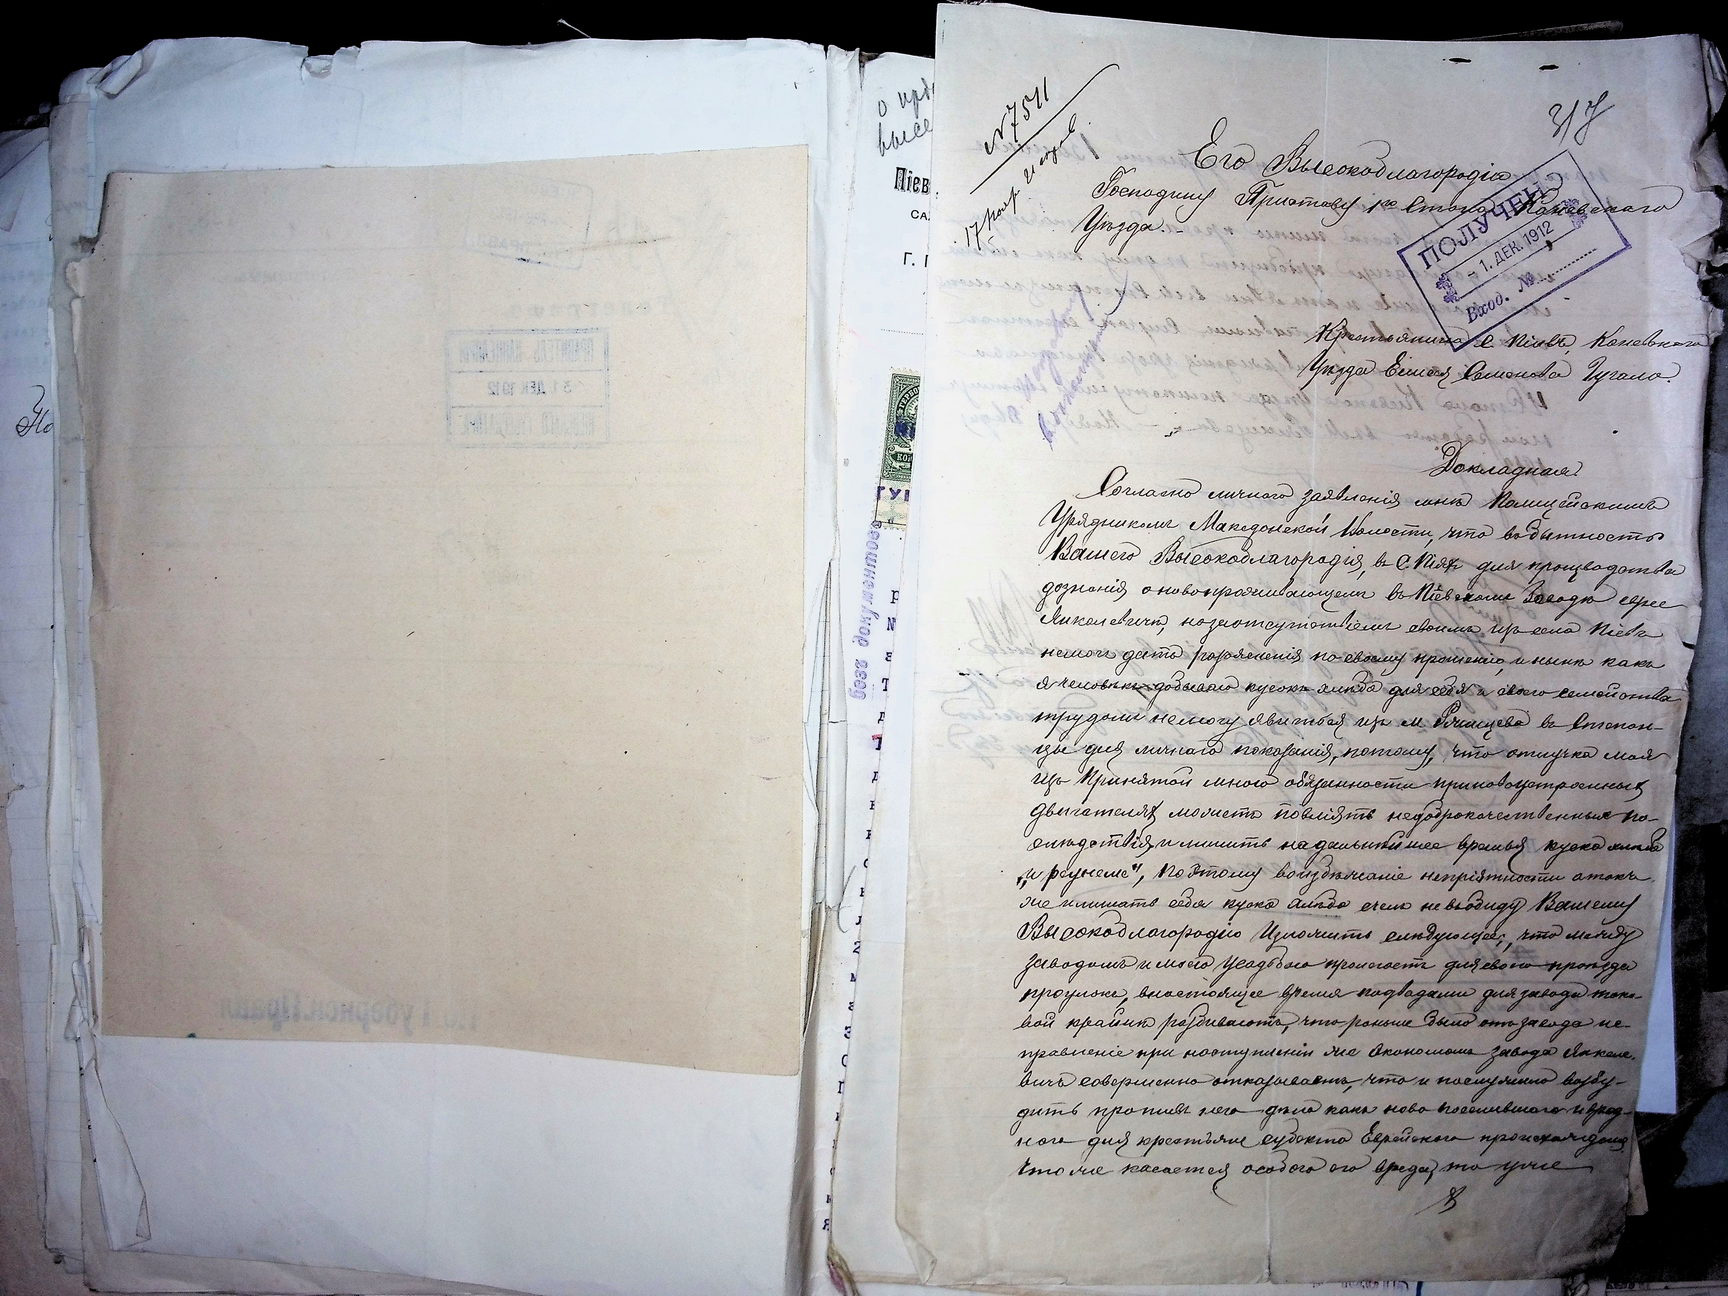 № 7511
317
Его Высокоблагородію
Господину Приставу 1го Стана Каневскаго
Уѣзда.
ПОЛУЧЕНО
- 1. ДЕК. 1912
Вход. №
Крестьянина с. Піевъ, Каневскаго
Уѣзда Елисея Семенова Гугало.
Докладная
Согласно личнаго заявленія мнѣ Полицейскимъ
Урядникомъ Македонской Волости, что въ бытность
Вашего Высокоблагородія, въ с. Піяхъ для производства
дознанія о новопроживающемъ въ Піевскомъ Заводѣ евреѣ
Янкелевичѣ, но за отсутствіемъ своимъ изъ села Піевъ
немогъ дать разъясненія по своему прошенію, и нынѣ какъ
я человѣкъ добываю кусокъ хлѣба для себя и своего семейства
трудомъ немогу явиться изъ м. Ржищева въ Степан-
цы для личнаго показанія, потому, что отлучка моя
изъ принятой мною обязанности при новоустроенныхъ
двигателяхъ можетъ повліять недоброкачественныя по-
слѣдствія, и лишить на дальнѣйшее время куска хлѣба
поэтому во избѣжаніе непріятности а такъ
же и лишать себя куска хлѣба счелъ не въ обиду Вашему
Высокоблагородію Изложить слѣдующее; что между
заводомъ и моею усадьбою пролегаетъ для своего проѣзда
проулокъ, в настоящее время подводами для завода тако-
вой крайнѣ разбиваютъ, что раньше было отъ завода ис-
правленіе при наступленіи же Економомъ завода Янкеле-
вичъ совершенно отказываетъ, что и послужило возбу-
дить противъ него дѣло какъ ново поселившаго и вред-
наго для крестьянъ субъекта Еврейскаго происхожденія
Что же касается особого его вреда, то уже
о
высе
Піев
СА
Г.
безъ документовъ
ПРАВИТЕЛЬ КАНЦЕЛЯРІИ
31 ДЕК 1912
По Губернск. Правл